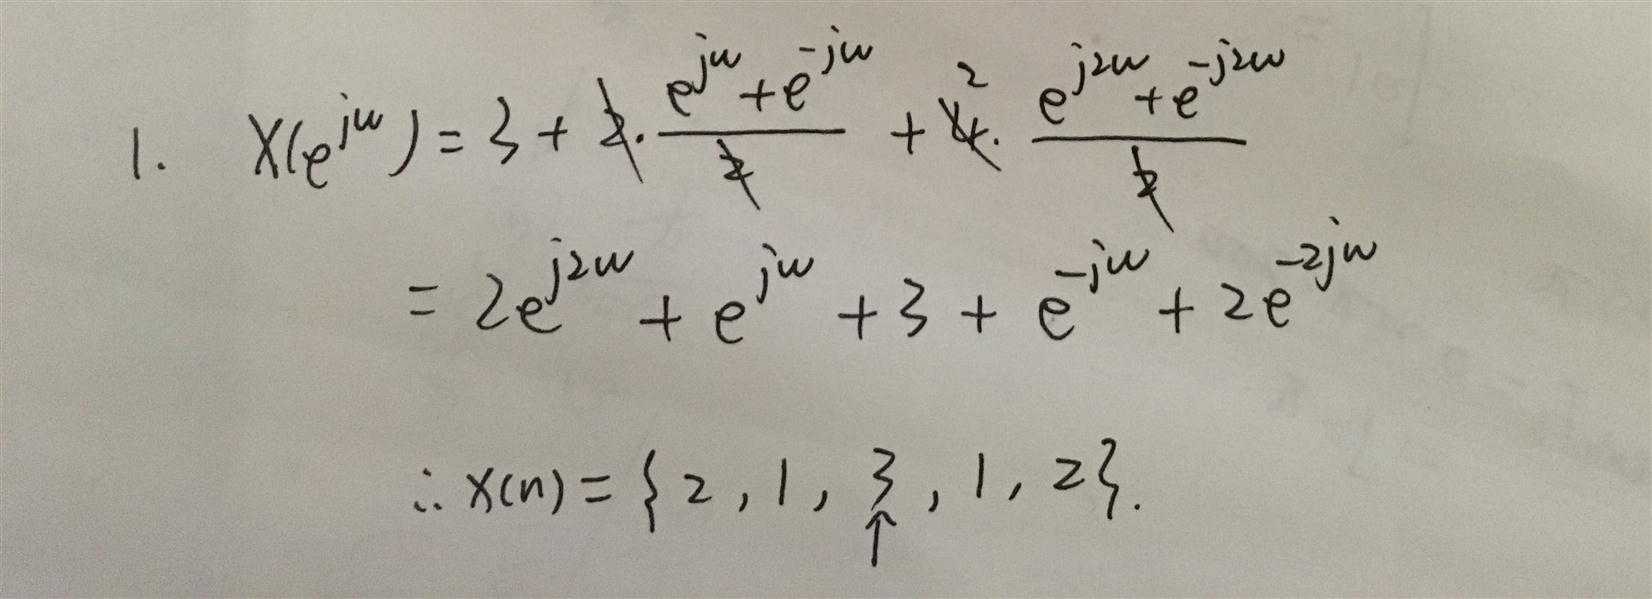 1. X(e^{jw}) = 3 + 2 · \frac{e^{jw} + e^{-jw}}{2} + 4^2 · \frac{e^{j2w} + e^{-j2w}}{2}
= 2e^{j2w} + e^{jw} + 3 + e^{-jw} + 2e^{-2jw}
∴ x(n) = {2, 1, 3, 1, 2}.
↑